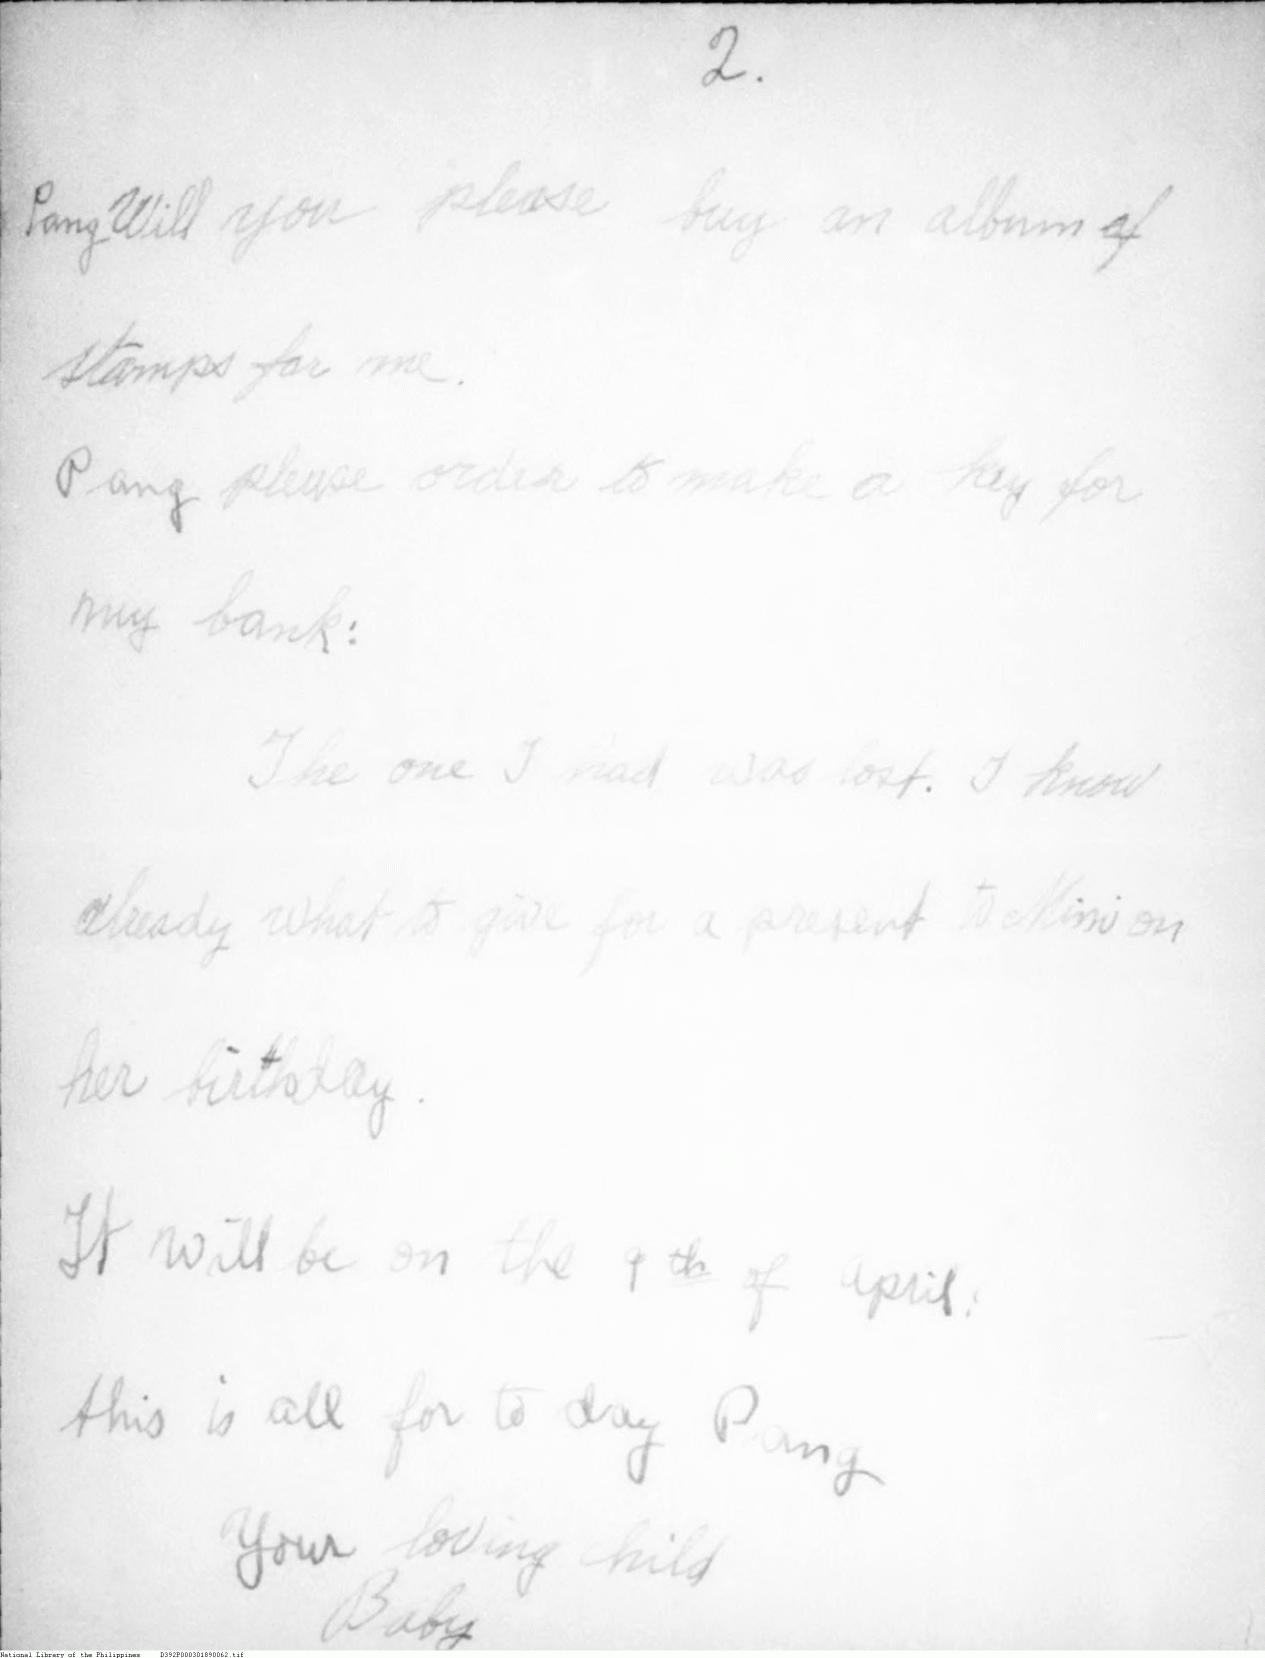 2.
Pang Will you please buy an album of
stamps for me.
Pang please order to make a key for
my bank:
The one I had was lost. I know
already what to give for a present to Mimi on
her birthday.
It will be on the 9th of april:
this is all for to day Pang
Your loving child
Baby
National Library of the Philippines D392P000301890062.tif